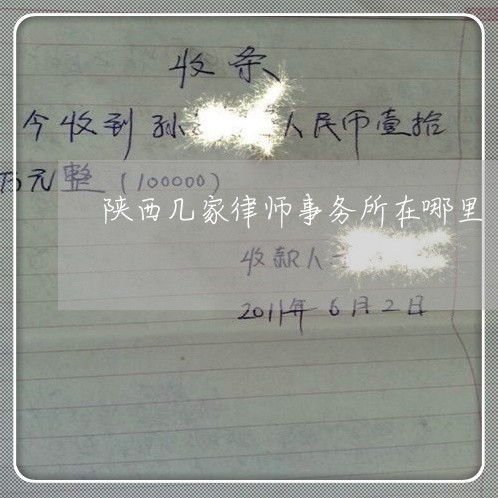 收条
今收到孙 人民币壹拾
万元整（100000）
陕西几家律师事务所在哪里
收款人
2011年6月2日